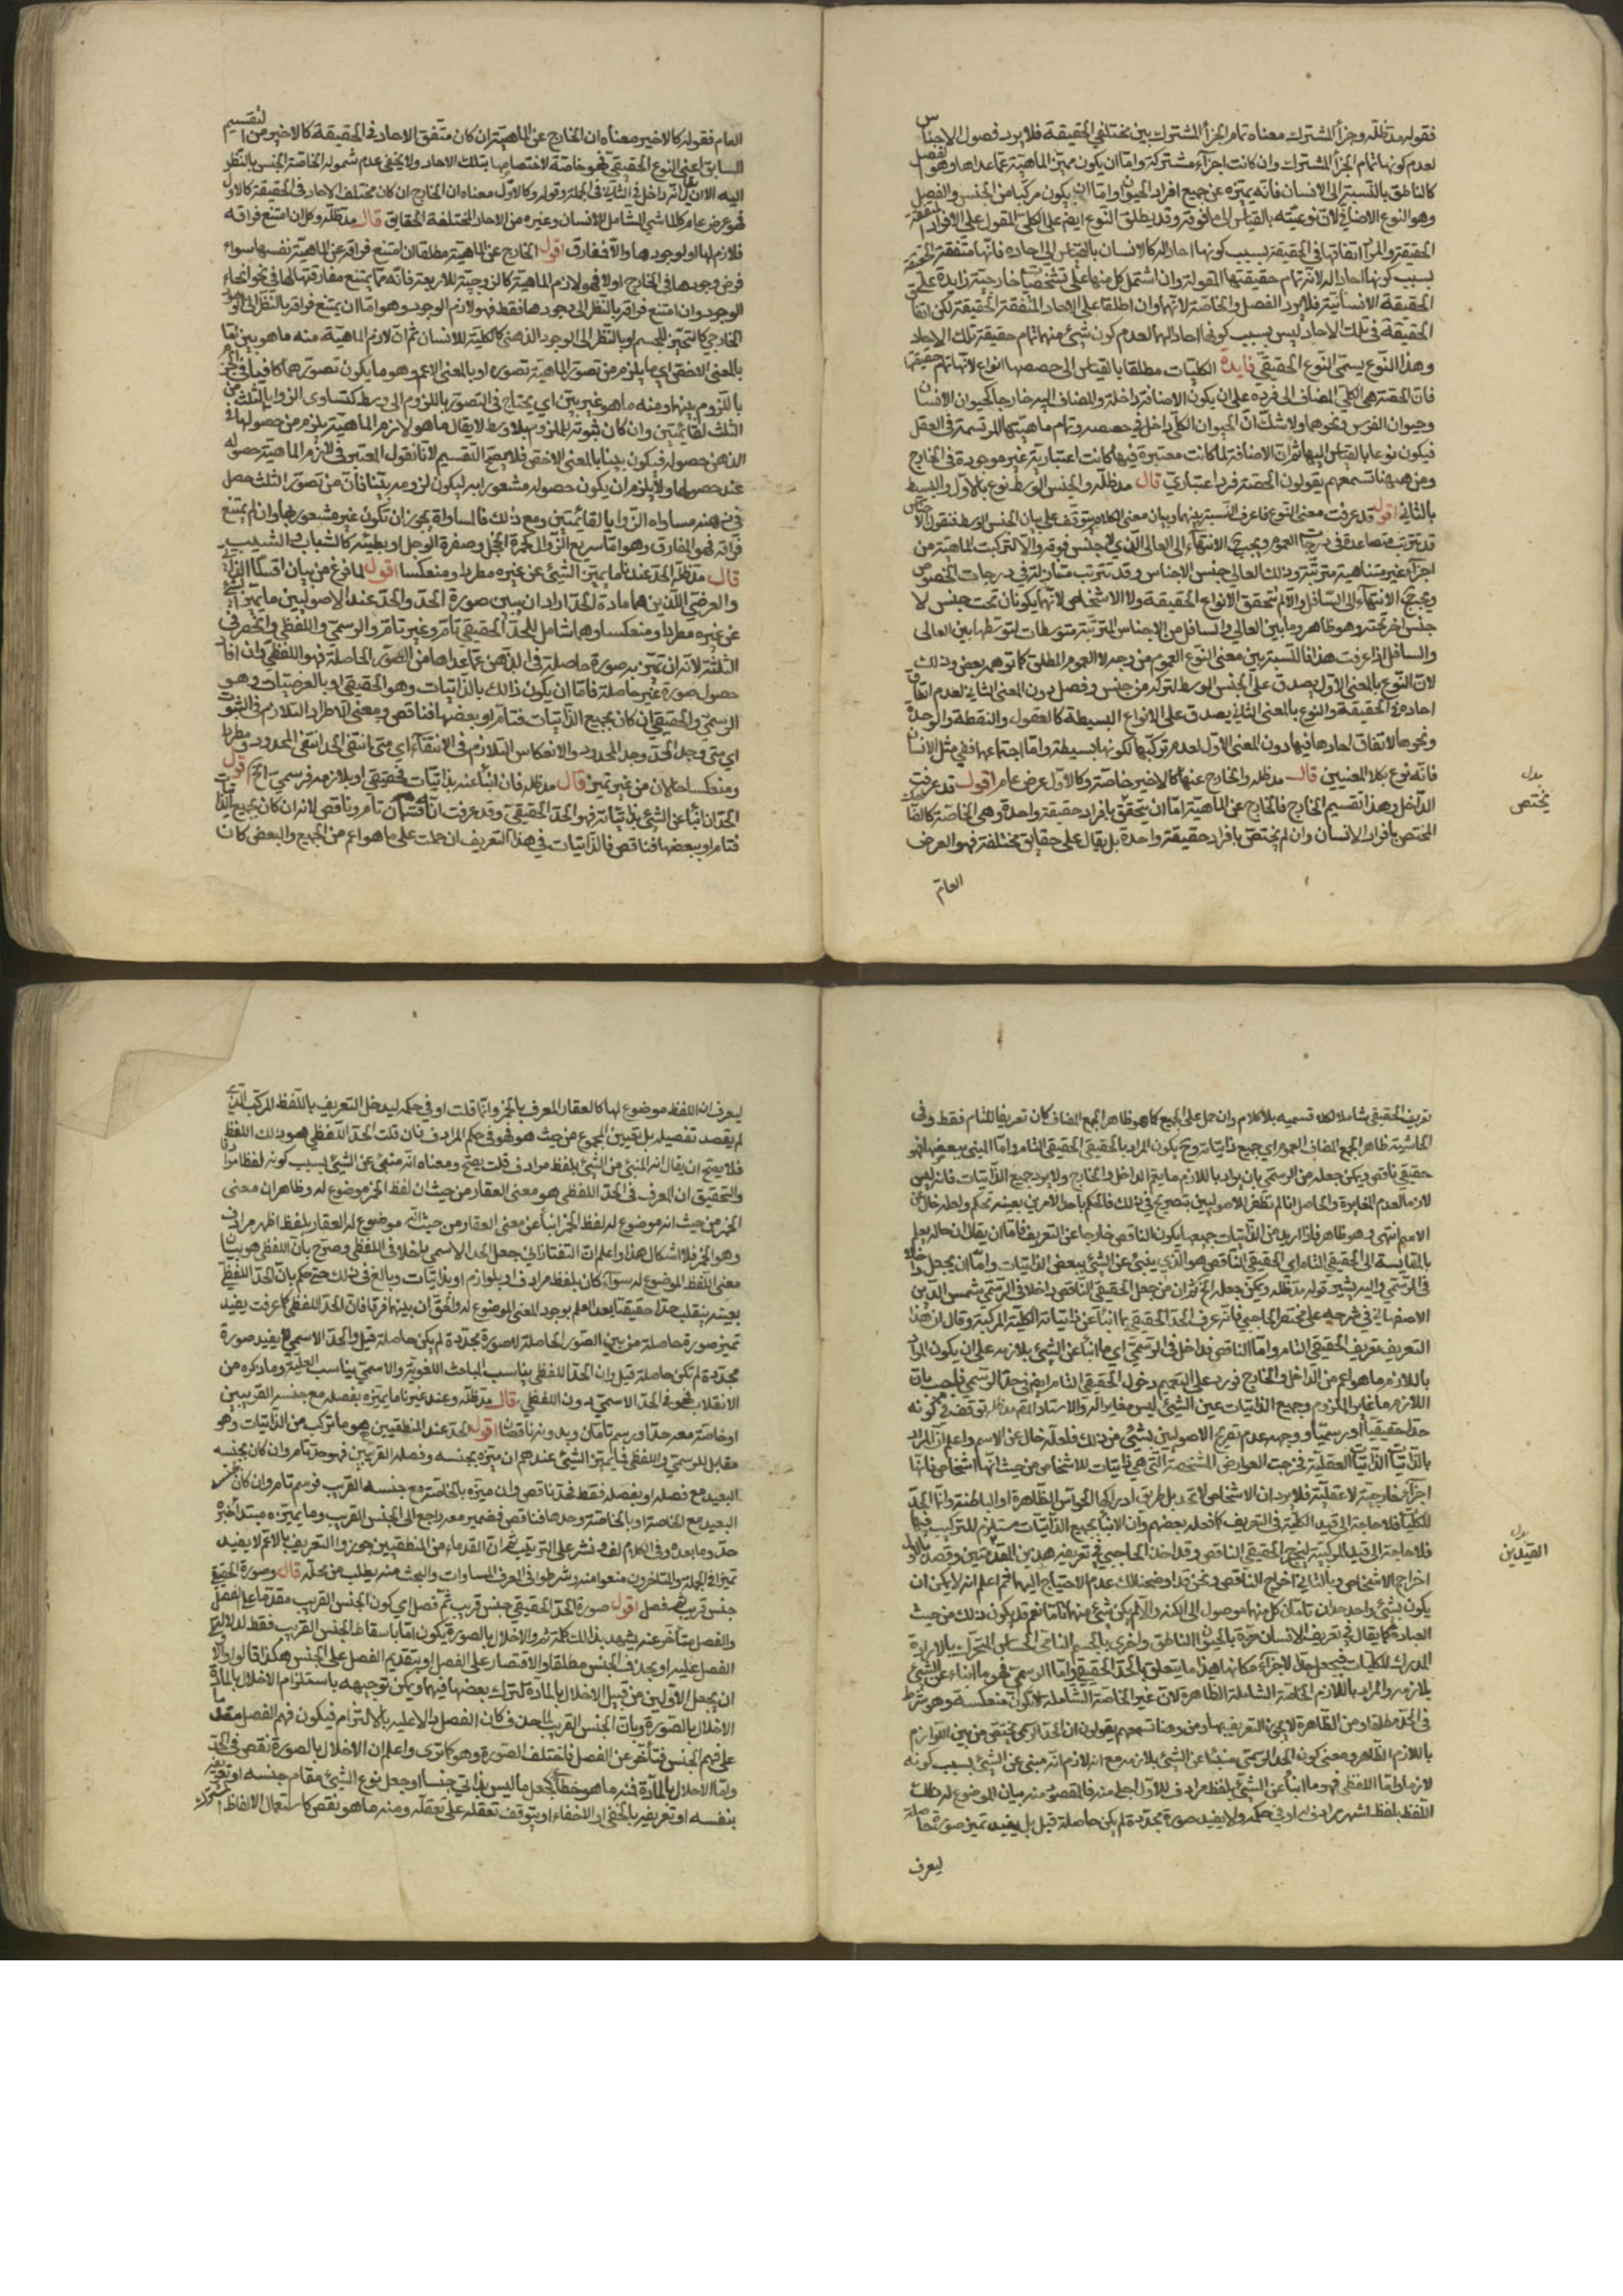 فقوله مدّ ظلّه وجزأ المشترك معناه تمام الجزأ المشترك بين مختلفى الحقيقة فلا يرد فصول الاجناس
لعدم كونها تمام الجزأ المشترك وان كانت اجزآء مشتركة وامّا ان يكون مميّز الماهيّة عمّا عداها وهو الفصل
كالناطق بالنسبة الى الانسان فانّه يميّزه عن جميع افراد الحيوان وامّا ان يكون مركّبا من الجنس والفصل
وهو النوع الاضافى لانّ نوعيّته بالقياس الى ما فوقه وقد يطلق النّوع ايضا على الكلّى المقول على الافراد المتفقة
الحقيقة والمراد اتفاقها فى الحقيقة بسبب كونها احادا له كالانسان بالقياس الى احاده فانّها متّفقة الحقيقة
بسبب كونها احادا له لانّه تمام حقيقتها المقولة وان اشتمل كل منها على تشخصيّات خارجيّة زايدة على
الحقيقة الانسانيّة فلا يرد الفصل والخاصة لانّهما وان اطلقا على الاحاد المتّفقة الحقيقة لكن اتفاق
الحقيقة فى تلك الاحاد ليس بسبب كونها احادا لهما لعدم كون شىء منهما تمام حقيقة تلك الاحاد
وهذا النّوع يسمّى النّوع الحقيقى فايدة الكليّات مطلقا بالقياس الى حصصها انواع لانّها تمام حقيقتها
فانّ الحصّة هى الكلّى المضاف الى فرده على ان يكون الاضافة داخلة والمضاف اليه خارجا كحيوان الانسان
وحيوان الفرس ونحوهما ولا شكّ انّ الحيوان الكلّى داخل فى حصصه وتمام ماهيّتها المرتسمة فى العقل
فيكون نوعا بالقياس اليها ثمّ انّ الاضافة لمّا كانت معتبرة فيها كانت اعتباريّة غير موجودة فى الخارج
ومن ههنا تسمعهم يقولون الحصّة فرد اعتبارىّ قال مدّ ظلّه والجنس الوسط نوع بالاوّل والبسيط
بالثانى اقول قد عرفت معنى النّوع فاعرف النّسبة بينهما وبيان معنى الكلام يتوقّف على بيان الجنس الوسط فنقول الاجناس
قد يترتّب متصاعدة فى درجات العموم ويجب الانتهآء الى العالى الّذى لا جنس فوقه والّا لتركّبت الماهيّة من
اجزآء غير متناهية مترتّبة وذلك العالى جنس الاجناس وقد تترتب متنازلة فى درجات الخصوص
ويجب الانتهآء الى السّافل والّا لم تتحقق الانواع الحقيقة ولا الاشخاص لانّهما يكونان تحت جنس لا
جنس اخر تحته وهو ظاهر وما بين العالى والسافل من الاجناس المترتّبة متوسطات لتوسّطها بين العالى
والسافل اذا عرفت هذا فالنّسبة بين معنى النّوع العموم من وجه لا العموم المطلق كما توهمه بعض وذلك
لانّ النّوع بالمعنى الاوّل يصدق على الجنس الوسط لتركّبه من جنس وفصل دون المعنى الثانى لعدم اتفاق
احاده فى الحقيقة والنوع بالمعنى الثانى يصدق على الانواع البسيطة كالعقول والنقطة والوحدة
ونحوها لاتفاق احادها فيها دون المعنى الاوّل لعدم تركّبها لكونها بسيطة وامّا اجتماعهما ففى مثل الانسان
فانّه نوع بكلا المعنيين قال مدّ ظلّه والخارج عنها كالاخير خاصّة وكالاوّل عرض عام اقول قد عرفت
الدّاخل وهذا تقسيم الخارج فالخارج عن الماهيّة امّا ان يتحقّق بافراد حقيقة واحدة وهى الخاصّة كالضاحك
المختص بافراد الانسان وان لم يختصّ بافراد حقيقة واحدة بل يقال على حقايق مختلفة فهو العرض
العامّ
بدل
يختص
العام فقوله كالاخير معناه ان الخارج عن الماهيّة ان كان متّفق الاحاد فى الحقيقة كالاخير من التقسيم
السابق اعنى النوع الحقيقى فهو خاصّة لاختصاصها بتلك الاحاد ولا يخفى عدم شموله الخاصّة الجنس بالنّظر
اليه الا ان يقال انّه داخل فى الثانية فى الجملة وقوله وكالاوّل معناه ان الخارج ان كان مختلف الاحاد فى الحقيقة كالاول
فهو عرض عام كالماشى الشّامل للانسان وغيره من الاحاد المختلفة الحقايق قال مدّ ظلّه وكل ان امتنع فراقه
فلازم لها او لوجودها والّا فمفارق اقول الخارج عن الماهيّة مطلقا ان امتنع فراقه عن الماهيّة نفسها سواء
فرض وجودها فى الخارج اولا فهو لازم الماهيّة كالزوجيّة للاربعة فانّه ممّا يمتنع مفارقتها لها فى نحو انحاء
الوجود وان امتنع فراقه بالنّظر الى وجودها فقط فهو لازم الوجود وهو امّا ان يمتنع فراقه بالنّظر الى الوجود
الخارجى كالتحيّز للجسم او بالنّظر الى الوجود الذهنى كالكليّة للانسان ثمّ انّ لازم الماهيّة منه ما هو بيّن امّا
بالمعنى الاخصّ اى ما يلزم من تصوّر الماهيّة تصوره او بالمعنى الاعم وهو ما يكون تصوّرهما كافيا فى الجزم
باللّزوم بينهما ومنه ما هو غير بيّن اى يحتاج فى التصوّر باللزوم الى وسط كتساوى الزوايا الثلث من
المثلث لقائمتين وان كان ثبوته للملزوم بلا وسط لا يقال ما هو لازم الماهيّة يلزم من حصولها فى
الذهن حصوله فيكون بيّنا بالمعنى الاخصّ فلا يصحّ التقسيم لانّا نقول المعتبر فى لازم الماهيّة حصوله
عند حصولها ولا يلزم ان يكون حصوله مشعورا به ليكون لزومه بيّنا فانّ من تصوّر المثلث حصل
فى ذهنه مساواه الزّوايا بالقائمتين ومع ذلك فالمساواة يجوز ان تكون غير مشعور بها وان لم يمتنع
فراقه فهو المفارق وهو امّا سريع الزّوال كحمرة الخجل وصفرة الوجل او بطيئه كالشباب والشّيب
قال مدّ ظلّه الحدّ عندنا ما يميّز الشّىء عن غيره مطردا ومنعكسا اقول لما فرغ من بيان اقسام الذّاتى
والعرضى اللّذين هما مادة الحدّ اراد ان يبيّن صورة الحدّ والحدّ عند الاصوليين ما يميّز الشّىء
عن غيره مطردا ومنعكسا وهو شامل للحدّ الحقيقى تامّه وغير تامّه والرسمىّ واللفظى وانحصر فى
الثلثة لانّه ان تميّز به صورة حاصلة فى الذّهن عمّا عداها من الصّور الحاصلة فهو اللفظى وان افاد
حصول صورة غير حاصلة فامّا ان يكون ذالك بالذّاتيات وهو الحقيقى او بالعرضيّات وهو
الرسمىّ والحقيقى ان كان بجميع الذّاتيات فتامّ او ببعضها فناقص ومعنى الاطراد التلازم فى الثبوت
اى متى وجد الحدّ وجد المحدود والانعكاس التلازم فى الانتفآء اى متى انتفى الحدّ انتفى المحدود ومطردا
ومنعكسا حالان من غير تميز قال مدّ ظلّه فان انبأ عنه بذاتيّات فحقيقى او بلازمه فرسمىّ الخ اقول
الحدّ ان انبأ عن الشىء بذاتيّاته فهو الحدّ الحقيقى وقد عرفت انّه قسمان تام وناقص لانه ان كان بجميع الذّاتيات
فتامّ او ببعضها فناقص فالذّاتيات فى هذا التعريف ان حملت على ما هو اعم من الجميع والبعض كان
تعريف الحقيقى شاملا لكلا قسميه بلا كلام وان حمل على الجميع كما هو ظاهر الجمع المضاف كان تعريفا للتام فقط وفى
الحاشية ظاهر الجمع المضاف العموم اى جميع ذاتياته وح يكون المراد بالحقيقى الحقيقى التام وامّا المبنى ببعضها فهو
حقيقى ناقص ويمكن جعله من الرسمى بان يراد باللازم ما يعمّ الداخل والخارج ولا يرد جميع الذّاتيات فانه ليس
لازما لعدم المغايرة والحاصل انا لم نظفر للاصوليين بتصريح فى ذلك فالحكم باحد الامرين بعينه تحكم ولعله خال عن
الاسم انتهى وهو ظاهر فاذا اريد من الذّاتيات جميعها يكون الناقص خارجا عن التعريف فامّا ان يقال ان حاله يعلم
بالمقايسة الى الحقيقى التام اى الحقيقى النّاقص هو الّذى ينبئ عن الشّىء ببعض الذاتيات وامّا ان يجعل داخلا
فى الرّسمى واليه يشير قوله مدّ ظلّه ويمكن جعله الخ ثم ان من جعل الحقيقى الناقص داخلا فى الرّسمّى شمس الدّين
الاصفهانى فى شرحه على مختصر الحاجبى فانّه عرف الحدّ الحقيقى بما انبأ عن ذاتياته الكليّة المركبة وقال ان هذا
التعريف تعريف الحقيقى التام وامّا الناقص فداخل فى الرّسمىّ اى ما انبأ عن الشىء بلازمه على ان يكون المراد
باللازم ما هو اعم من الدّاخل والخارج فورد على التعميم دخول الحقيقى التام ايضا فى حدّ الرّسمى فاجيب بان
اللازم ما غاير الملزوم وجميع الذاتيات عين الشىء ليس مغايرا له والاستاد مدّ ظلّه توقف فى كونه
حدّا حقيقيّا او رسميّا ووجهه عدم تصريح الاصوليين بشىء من ذلك فلعلّه خال عن الاسم واعلم انّ المراد
بالذّاتيات الذّاتيات العقليّة فخرجت العوارض المشخصة التى هى ذاتيات للاشخاص من حيث انّها اشخاص فانّها
اجزآء خارجيّة لا عقليّة فلا يرد ان الاشخاص لا تحد بل طريق ادراكها الحواس الظّاهرة او الباطنة وانّما الحدّ
للكليّات فلا حاجة الى قيد الكليّة فى التعريف كما فعله بعضهم وان الانبآء بجميع الذّاتيات مستلزم للتركيب فيها
فلا حاجة الى قيد المركبيّة ليخرج الحقيقى الناقص وقد اخذ الحاجبى فى تعريفه هذين المقدمتين وقصد بالاول
اخراج الاشخاص وبالثانى اخراج الناقص ونحن قد اوضحنا لك عدم الاحتياج اليهما ثم اعلم انه لا يمكن ان
يكون لشىء واحد حدان تامّان كل منهما موصول الى الكنه والّا لم يكن شىء منهما تامّا نعم قد يكون ذلك من حيث
العبارة كما يقال فى تعريف الانسان مرّة بالحيوان الناطق واخرى بالجسم النّامى الحسّاس المتحرّك بالارادة
المدرك للكليّات فيجعل حدّ الاجزاء مكانها هذا ما يتعلق بالحدّ الحقيقى وامّا الرسمى فهو ما انبآء عن الشّىء
بلازمه والمراد باللازم الخاصّة الشّاملة الظاهرة لانّ غير الخاصّة الشّاملة لا يكون منعكسة وهو شرط
فى الحدّ مطلقا ومن الظّاهرة لا يجوز التعريف بها ومن هنا تسمعهم يقولون ان الحدّ الرسمى يختصّ من بين اللّوازم
باللازم الظّاهر ومعنى كون الحدّ الرّسمّى منبئا عن الشّىء بلازمه مع انه لازم انّه مبنى عن الشّىء بسبب كونه
لازما وامّا اللفظى فهو ما انبأ عن الشّىء بلفظ مرادف للاوّل اجلى منه فالمقصود منه بيان الموضوع له ذلك
اللّفظ بلفظ اشهر مرادف له او فى حكمه ولا يفيد صورة مجدّدة لم يكن حاصلة قبل بل يفيد تميز صورة حاصلة
ليعرف
بدل
القيدين
ليعرف ان اللفظ موضوع لها كالعقار المعرف بالخمر وانّما قلت او فى حكمه ليدخل التعريف باللّفظ المركّب الّذى
لم يقصد تفصيله بل تعيين المجموع من حيث هو هو فهو فى حكم المرادف فان قلت الحدّ اللّفظى هو ذلك اللفظ
فلا يصحّ ان يقال انه المنبئ عن الشّىء بلفظ مرادف قلت يصحّ ومعناه انّه منبئ عن الشّىء بسبب كونه لفظا مرادفا
والتحقيق ان المعرف فى الحدّ اللفظى هو معنى العقار من حيث ان لفظ الخمر موضوع له وظاهر ان معنى
الخمر من حيث انه موضوع له لفظ الخمر انبأ عن معنى العقار من حيث انّه موضوع له العقار بلفظ اظهر مرادف
وهو الخمر فلا اشكال هذا واعلم انّ التفتازانى جعل الحدّ الاسمى داخلا فى اللفظى وصرّح بانّ اللفظى هو بيان
معنى اللّفظ الموضوع له سوآء كان بلفظ مرادف او بلوازم او بذاتيات وبالغ فى ذلك حتى حكم بانّ الحدّ اللفظى
بعينه ينقلب حدّا حقيقيّا بعد العلم بوجود المعنى الموضوع له والحق ان بينهما فرقا فانّ الحدّ اللفظى كما عرفت يفيد
تميز صورة حاصلة من بين الصّور الحاصلة لا صورة مجدّدة لم يكن حاصلة قبل والحدّ الاسمى يفيد صورة
مجدّدة لم تكن حاصلة قبل وان الحدّ اللفظى يناسب المباحث اللغويّة والاسمى يناسب العلميّة وما ذكره من
الانقلاب فهو فى الحدّ الاسمىّ دون اللفظى قال مدّ ظلّه وعند غيرنا ما يميّزه بفصله مع جنسه القريبين
او خاصّته معه حدّ او رسم تامان وبدونه ناقصان اقول الحدّ عند المنطقيين هو ما تركّب من الذّاتيات وهو
مقابل للرسمىّ واللفظى فما يميّز الشّىء عندهم ان ميّزه بجنسه وفصله القريبين فهو حدّ تام وان كان بجنسه
البعيد مع فصله او بفصله فقط فحدّ ناقص وان ميّزه بالخاصّة مع جنسه القريب فرسم تام وان كان بجنسه
البعيد مع الخاصّة او بالخاصّة وحدها فناقص فضمير معه راجع الى الجنس القريب وما يميّزه مبتدأ خبره
حدّ وما بعده وفى الكلام لف ونشر على الترتيب ثم ان القدماء من المنطقيين جوّزوا التعريف بالاعم لا يفيد
تميزا فى الجملة والمتاخرون منعوا منه وشرطوا فى المعرف المساوات والبحث منه يطلب من محلّه قال وصورة الحقيقى
جنس قريب ثمّ فصل اقول صورة الحدّ الحقيقى جنس قريب ثمّ فصل اى كون الجنس القريب مقدّما على الفصل
والفصل متأخّر عنه يشهد بذالك كلمة ثم والاخلال بالصورة يكون امّا باسقاط الجنس القريب فقط لدلالة
الفصل عليه او بحذف الجنس مطلقا والاقتصار على الفصل او بتقديم الفصل على الجنس هكذا قالوا والّا
ان يجعل الاوّلين من قبيل الاخلال بالمادّة لترك بعضها فيهما ويمكن توجيهه باستلزام الاخلال بالمادّة
الاخلال بالصّورة وبان الجنس القريب لمّا حذف كان الفصل دالا عليه بالالتزام فيكون فهم الفصل مقدما
على فهم الجنس فتأخّر عن الفصل فاختلف الصّورة وهو كما ترى واعلم ان الاخلال بالصورة نقص فى الحدّ
وامّا الاخلال بالمادّة فمنه ما هو خطأ كجعل ما ليس بذاتى جنسا او جعل نوع الشّىء مقام جنسه او تعريفه
بنفسه او تعريفه بالخفى او الاخفاء او يتوقف تعقله على تعقله ومنه ما هو نقص كاستعمال الالفاظ المشتركة